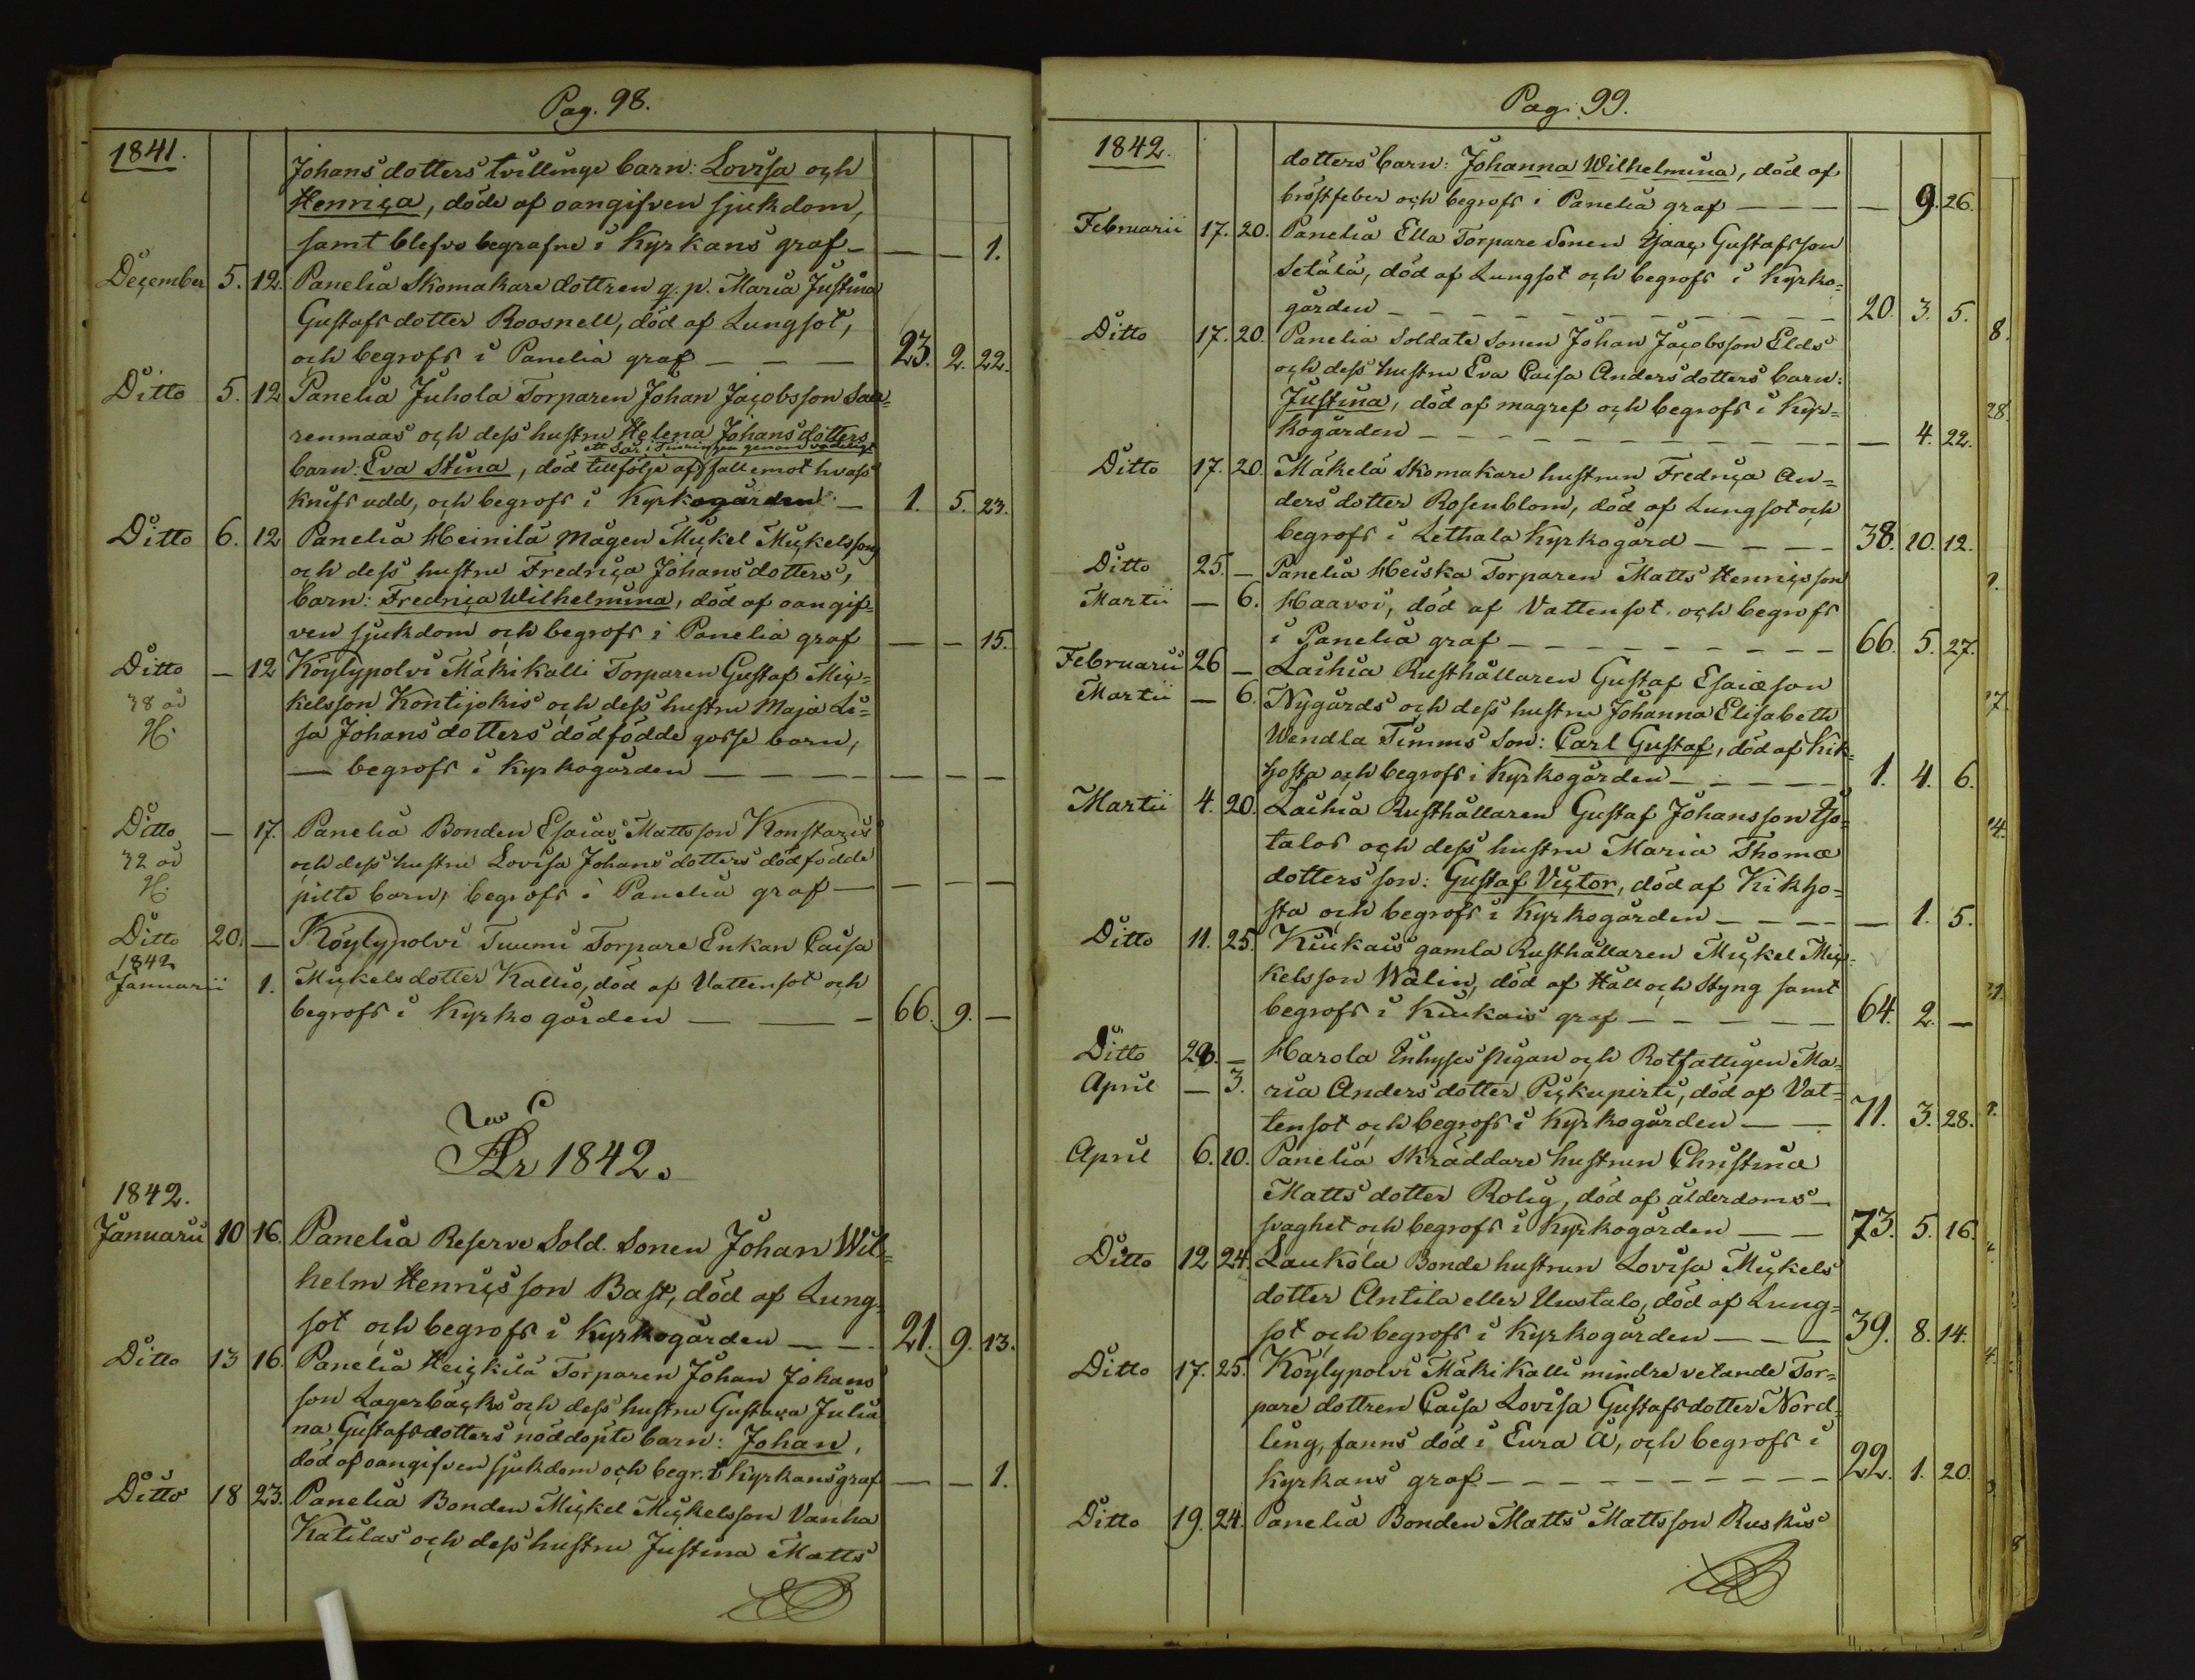 Pag. 98.
1841.
Johansdotters tvillinge barn: Lovisa och
Henrica, döde af oangifven sjukdom,
samt blefvo begrafne i Kyrkans graf — — — 1.
December 5. 12. Panelia Skomakare dottren q. p. Maria Justina
Gustafsdotter Roosnell, död af Lungsot,
och begrofs i Panelia graf — — — 23. 2. 22.
Ditto 5. 12 Panelia Juhola Torparen Johan Jacobsson Saa=
renmaas och dess hustru Helena Johansdotters
ett sår i Tinningen genom vådeligt
barn: Eva Stina, död tillfölje af fall emot hvass
knifs udd, och begrofs i Kyrkogården — 1. 5. 23.
Ditto 6. 12 Panelia Heinilä Mågen Mickel Mickelsson
och dess hustru Fredrica Johansdotters,
barn: Fredrica Wilhelmina, död af oangif=
ven sjukdom och begrofs i Panelia graf — — 15.
Ditto — 12 Köylypolvi Mäkikalli Torparen Gustaf Mic=
38 åd kelsson Kontijokis och dess hustru Maja Li=
H. sa Johansdotters dödfödde gosse barn,
— begrofs i Kyrkogården — — — — — — —
Ditto — 17. Panelia Bonden Esaias Mattsson Konstazis
32 åd och dess hustru Lovisa Johansdotters dödfödde
H. pilte barn, begrofs i Panelia graf — — — —
Ditto 20. — Köylypolvi Tuumi Torpare Enkan Caisa
1842
Januarii 1. Mickelsdotter Kallio, död af Vattensot och
begrofs i Kyrkogården — — — 66. 9. —
År 1842.
1842.
Januarii 10 16. Panelia Reserve Sold. Sonen Johan Wil=
helm Henricsson Bast, död af Lung=
sot och begrofs i Kyrkogården — — 21. 9. 13.
Ditto 13 16. Panelia Heickilä Torparen Johan Johans
son Lagerbäcks och dess hustru Gustava Julia
na Gustafsdotters nöddöpte barn: Johan,
död af oangifven sjukdom och begr. i Kyrkans graf — — 1.
Ditto 18 23. Panelia Bonden Mickel Mickelsson Vanha
Katilas och dess hustru Justina Matts
Pag. 99.
1842.
dotters barn: Johanna Wilhelmina, död af
bröstfeber och begrofs i Panelia graf — — — — 9. 26.
Februarii 17. 20. Panelia Ella Torpare Sonen Isaac Gustafsson
Setälä, död af Lungsot och begrofs i Kyrko=
gården — — — — — — — — — 20. 3. 5.
Ditto 17. 20. Panelia Soldate Sonen Johan Jacobsson Elds
och dess hustru Eva Caisa Andersdotters barn:
Justina, död af magref och begrofs i Kyr=
kogården — — — — — — — — — — 4. 22.
Ditto 17. 20. Mäkelä Skomakare hustrun Fredrica An=
dersdotter Rosenblom, död af Lungsot och
begrofs i Lethala Kyrkogård — — — — 38. 10. 12.
Ditto 25. — Panelia Heiska Torparen Matts Henricsson
Martii — 6. Haavoi, död af Vattensot och begrofs
i Panelia graf — — — — — — — — — 66. 5. 27.
Februarii 26 — Laihia Rusthållaren Gustaf Esaiæson
Martii — 6. Nygårds och dess hustru Johanna Elisabeth
Wendla Timms Son: Carl Gustaf, död af Kik=
hosta och begrofs i Kyrkogården — — — — 1. 4. 6.
Martii 4. 20. Laihia Rusthållaren Gustaf Johansson Iso=
talos och dess hustru Maria Thomæ
dotters son: Gustaf Victor, död af Kikho=
sta och begrofs i Kyrkogården — — — — 1. 5.
Ditto 11. 25. Kiukais gamla Rusthållaren Mickel Mic=
kelsson Wälin, död af Håll och Styng samt
begrofs i Kiukais graf — — — — — 64. 2. —
Ditto 28. — Harola Inhyses pigan och Rotfattigen Ma=
April — 3. ria Andersdotter Pickupirti, död af Vat=
tensot och begrofs i Kyrkogården — — 71. 3. 28.
April 6. 10. Panelia Skräddare hustrun Christina
Matts dotter Rolig, död af ålderdoms=
svaghet och begrofs i Kyrkogården — — 73. 5. 16.
Ditto 12 24. Laukola Bonde hustrun Lovisa Mickels
dotter Antila eller Uustalo, död af Lung=
sot och begrofs i Kyrkogården — — — 39. 8. 14.
Ditto 17. 25. Köylypolvi Mäkikalli mindre vetande Tor=
pare dottren Caisa Lovisa Gustafsdotter Nord=
ling, fanns död i Eura Å, och begrofs i
Kyrkans graf — — — — — — — — — 22. 1. 20.
Ditto 19. 24. Panelia Bonden Matts Mattsson Ruskis